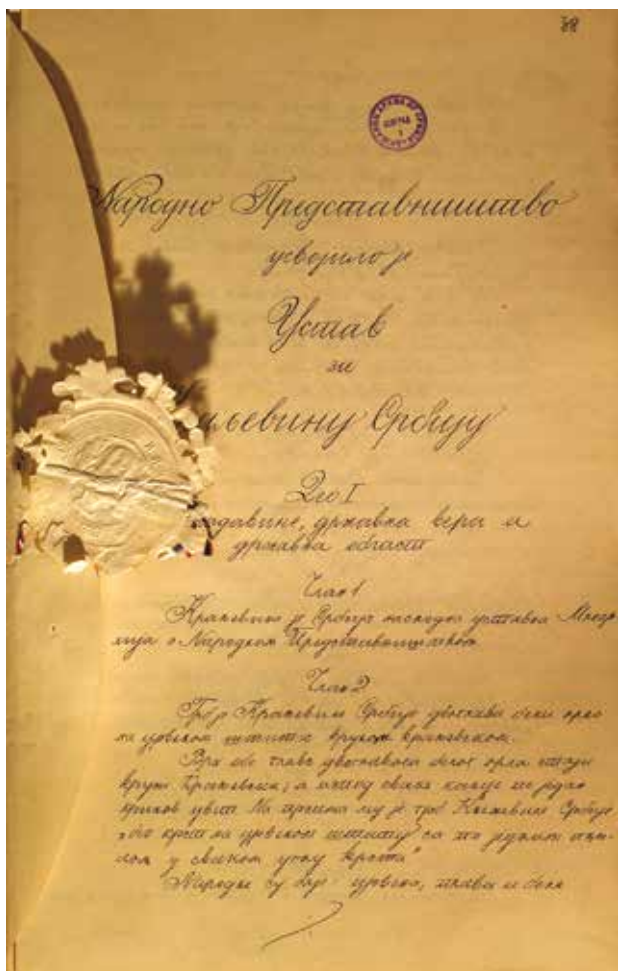 38
Народно Представништво
усвојило је
Устав
за
љевину Србију
Део I
државна вера и
државна област
Члан 1
Краљевина је Србија наследна уставна Монар
хија с Народним Представништвом.
Члан 2
Грб је Краљевине Србије двоглави бели орао
на црвеном штиту с круном краљевском.
Врх обе главе двоглавога белог орла стоји
круна Краљевска; а испод сваке канџе по један
кринов цвет. На прсима му је грб Књажевине Србије
бео крст на црвеном штиту са по једним оци-
лом у сваком углу крста"
Народне су боје: црвена, плава и бела